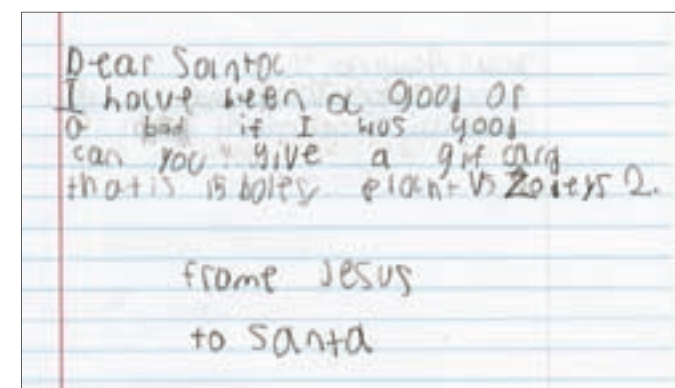 Dear Santa
I have been a good or
a bad if I was good
can you give a gif carg
that is 15 boles plant vs Zobeys 2.
frome Jesus
to santa